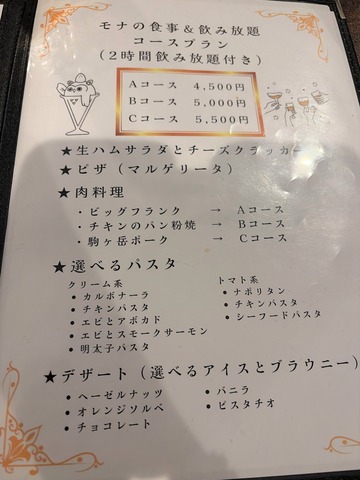 モナの食事&飲み放題
コースプラン
(2時間飲み放題付き)
Aコース 4,500円
Bコース 5,000円
Cコース 5,500円
★生ハムサラダとチーズクラッカー
★ピザ(マルゲリータ)
★肉料理
・ビッグフランク → Aコース
・チキンのパン粉焼 → Bコース
・駒ヶ岳ポーク → Cコース
★選べるパスタ
クリーム系
• カルボナーラ
• チキンパスタ
• エビとアボカド
• エビとスモークサーモン
• 明太子パスタ
トマト系
• ナポリタン
• チキンパスタ
• シーフードパスタ
★デザート(選べるアイスとブラウニー)
• ヘーゼルナッツ
• オレンジソルベ
• チョコレート
• バニラ
• ピスタチオ